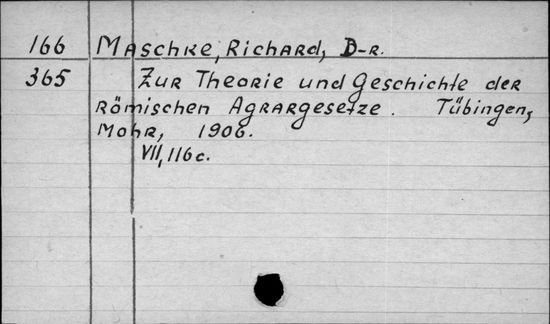 166 Maschke, Richard, D-r.
365 Zur Theorie und Geschichte der
Römischen Agrargesetze. Tübingen,
Mohr, 1906.
VII, 116 c.